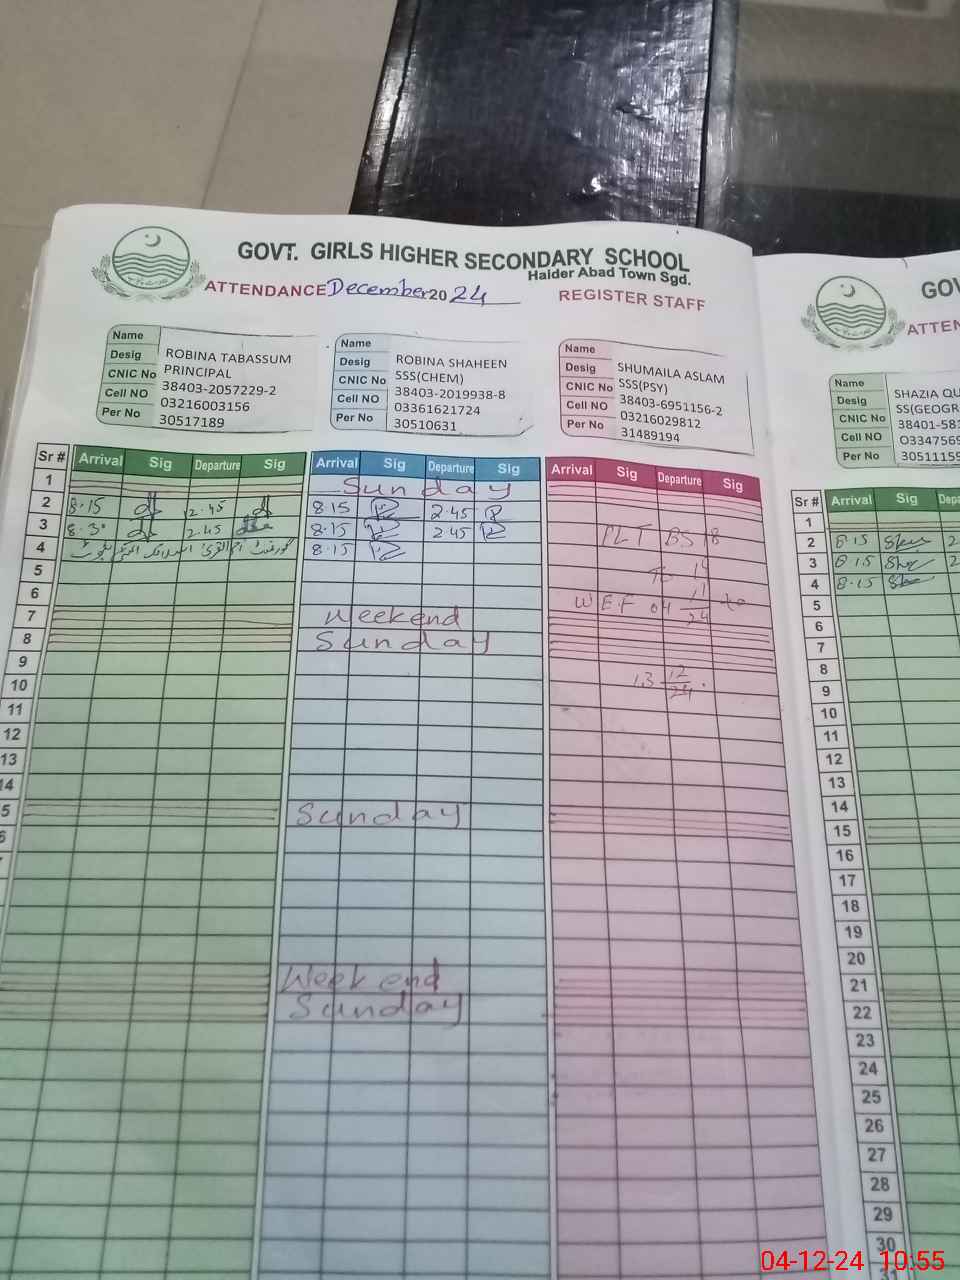 GOVT. GIRLS HIGHER SECONDARY SCHOOL
Haider Abad Town Sgd.
ATTENDANCE December 2024 REGISTER STAFF
Name
Desig
CNIC No
Cell NO
Per No
ROBINA TABASSUM
PRINCIPAL
38403-2057229-2
03216003156
30517189
Name
Desig
CNIC No
Cell NO
Per No
ROBINA SHAHEEN
SSS(CHEM)
38403-2019938-8
03361621724
30510631
Name
Desig
CNIC No
Cell NO
Per No
SHUMAILA ASLAM
SSS(PSY)
38403-6951156-2
03216029812
31489194
Sr # Arrival Sig Departure Sig Arrival Sig Departure Sig Arrival Sig Departure Sig
1 Sunday
2 8.15 2.45 8.15 2.45
3 8.30 2.45 8.15 2.45
4 8.15
5
6
7 Weekend
8 Sunday
9
10
11
12
13
14
5 Sunday
6
Week end
Sunday
BS 18
W.E.F 04 11/24 to
13 12/24.
GOV
ATTEN
Name
Desig
CNIC No
Cell NO
Per No
SHAZIA QU
SS(GEOGR
38401-581
03347569
30511159
Arrival Sig Depa
1
2 8.15 2
3 8.15 2
4 8.15
5
6
7
8
9
10
11
12
13
14
15
16
17
18
19
20
21
22
23
24
25
26
27
28
29
30
04-12-24 10.55